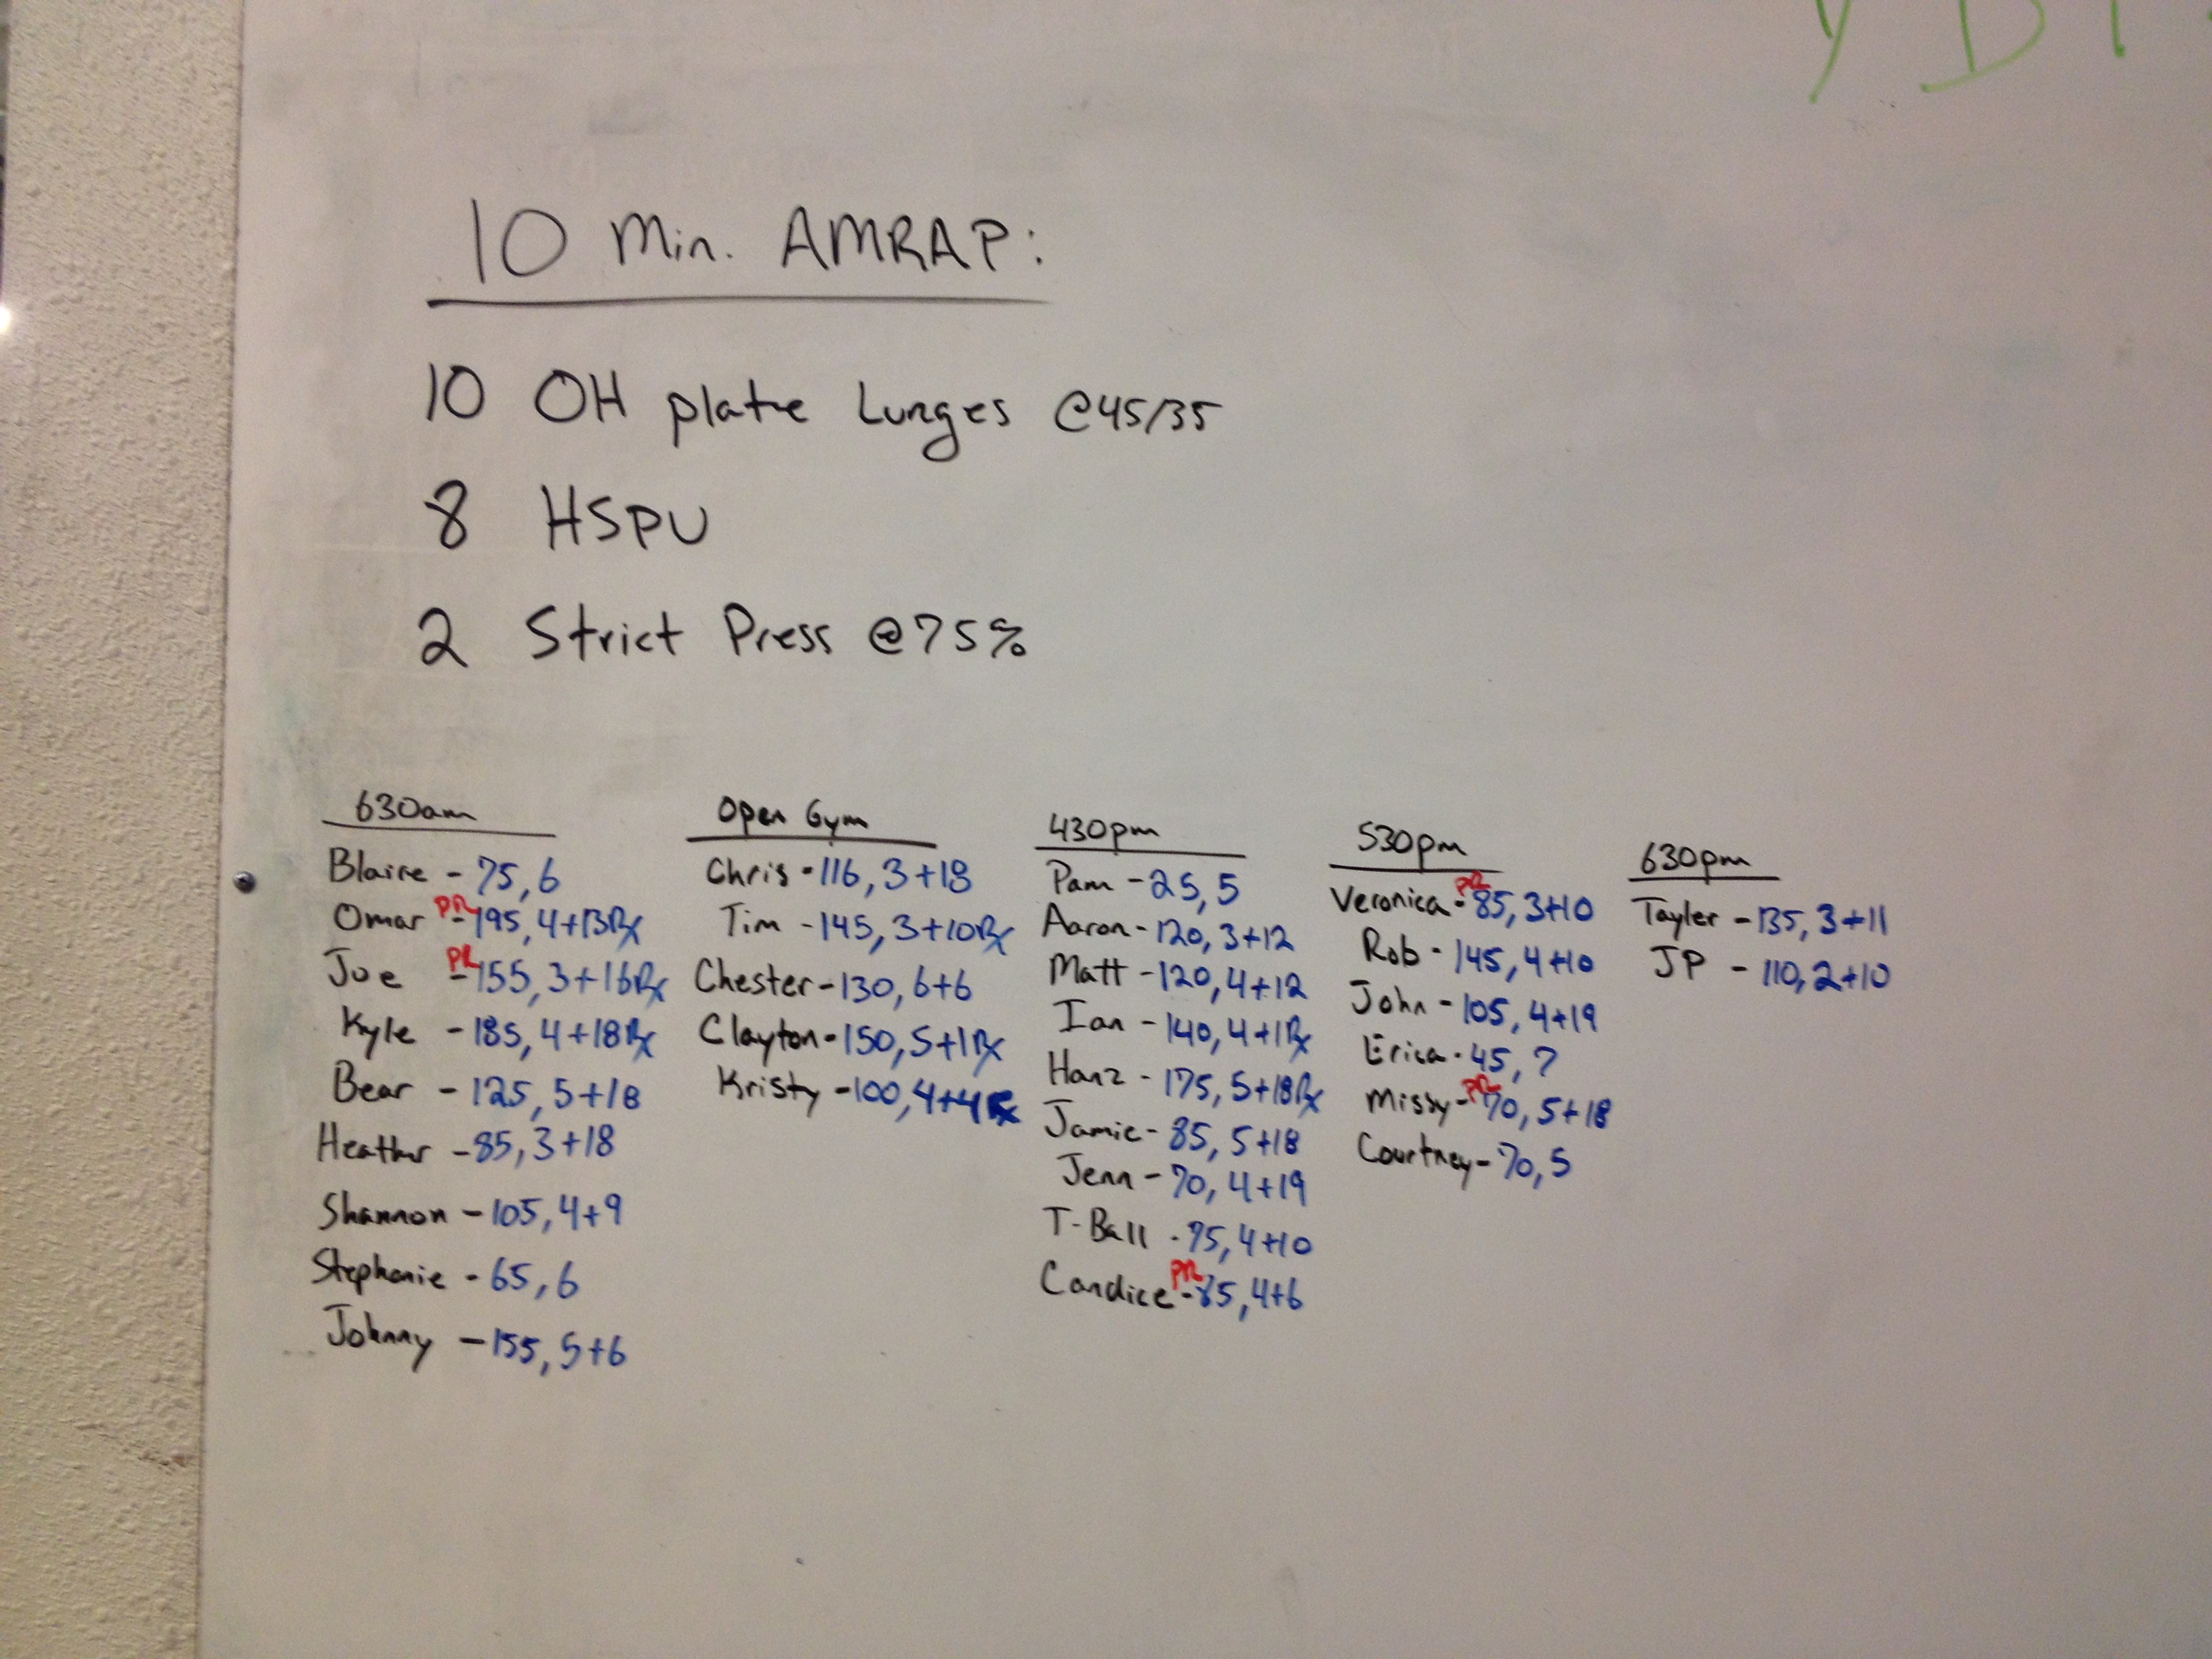 10 Min. AMRAP:
10 OH plate Lunges @45/35
8 HSPU
2 Strict Press @75%
630am
Blaire - 75, 6
Omar PR - 195, 4+13Rx
Joe PR - 155, 3+16Rx
Kyle - 185, 4+18Rx
Bear - 125, 5+18
Heather - 85, 3+18
Shannon - 105, 4+9
Stephanie - 65, 6
Johnny - 155, 5+6
Open Gym
Chris - 116, 3+18
Tim - 145, 3+10Rx
Chester - 130, 6+6
Clayton - 150, 5+1Rx
Kristy - 100, 4+4Rx
430pm
Pam - 25, 5
Aaron - 120, 3+12
Matt - 120, 4+12
Ian - 140, 4+1Rx
Hanz - 175, 5+18Rx
Jamie - 85, 5+18
Jenn - 70, 4+19
T-Ball - 75, 4+10
Candice PR - 85, 4+6
530pm
Veronica PR - 85, 3+10
Rob - 145, 4+10
John - 105, 4+19
Erica - 45, 7
Missy - PR 70, 5+18
Courtney - 70, 5
630pm
Tayler - 135, 3+11
JP - 110, 2+10